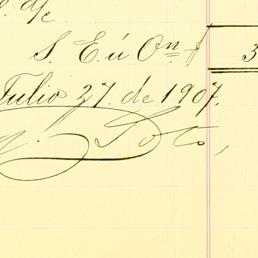 S. E. ú On. $ 3
Julio 27. de 1907.
Soto,